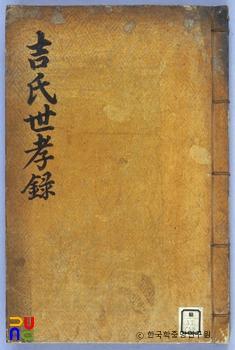 吉氏世孝録
© 한국학중앙연구원